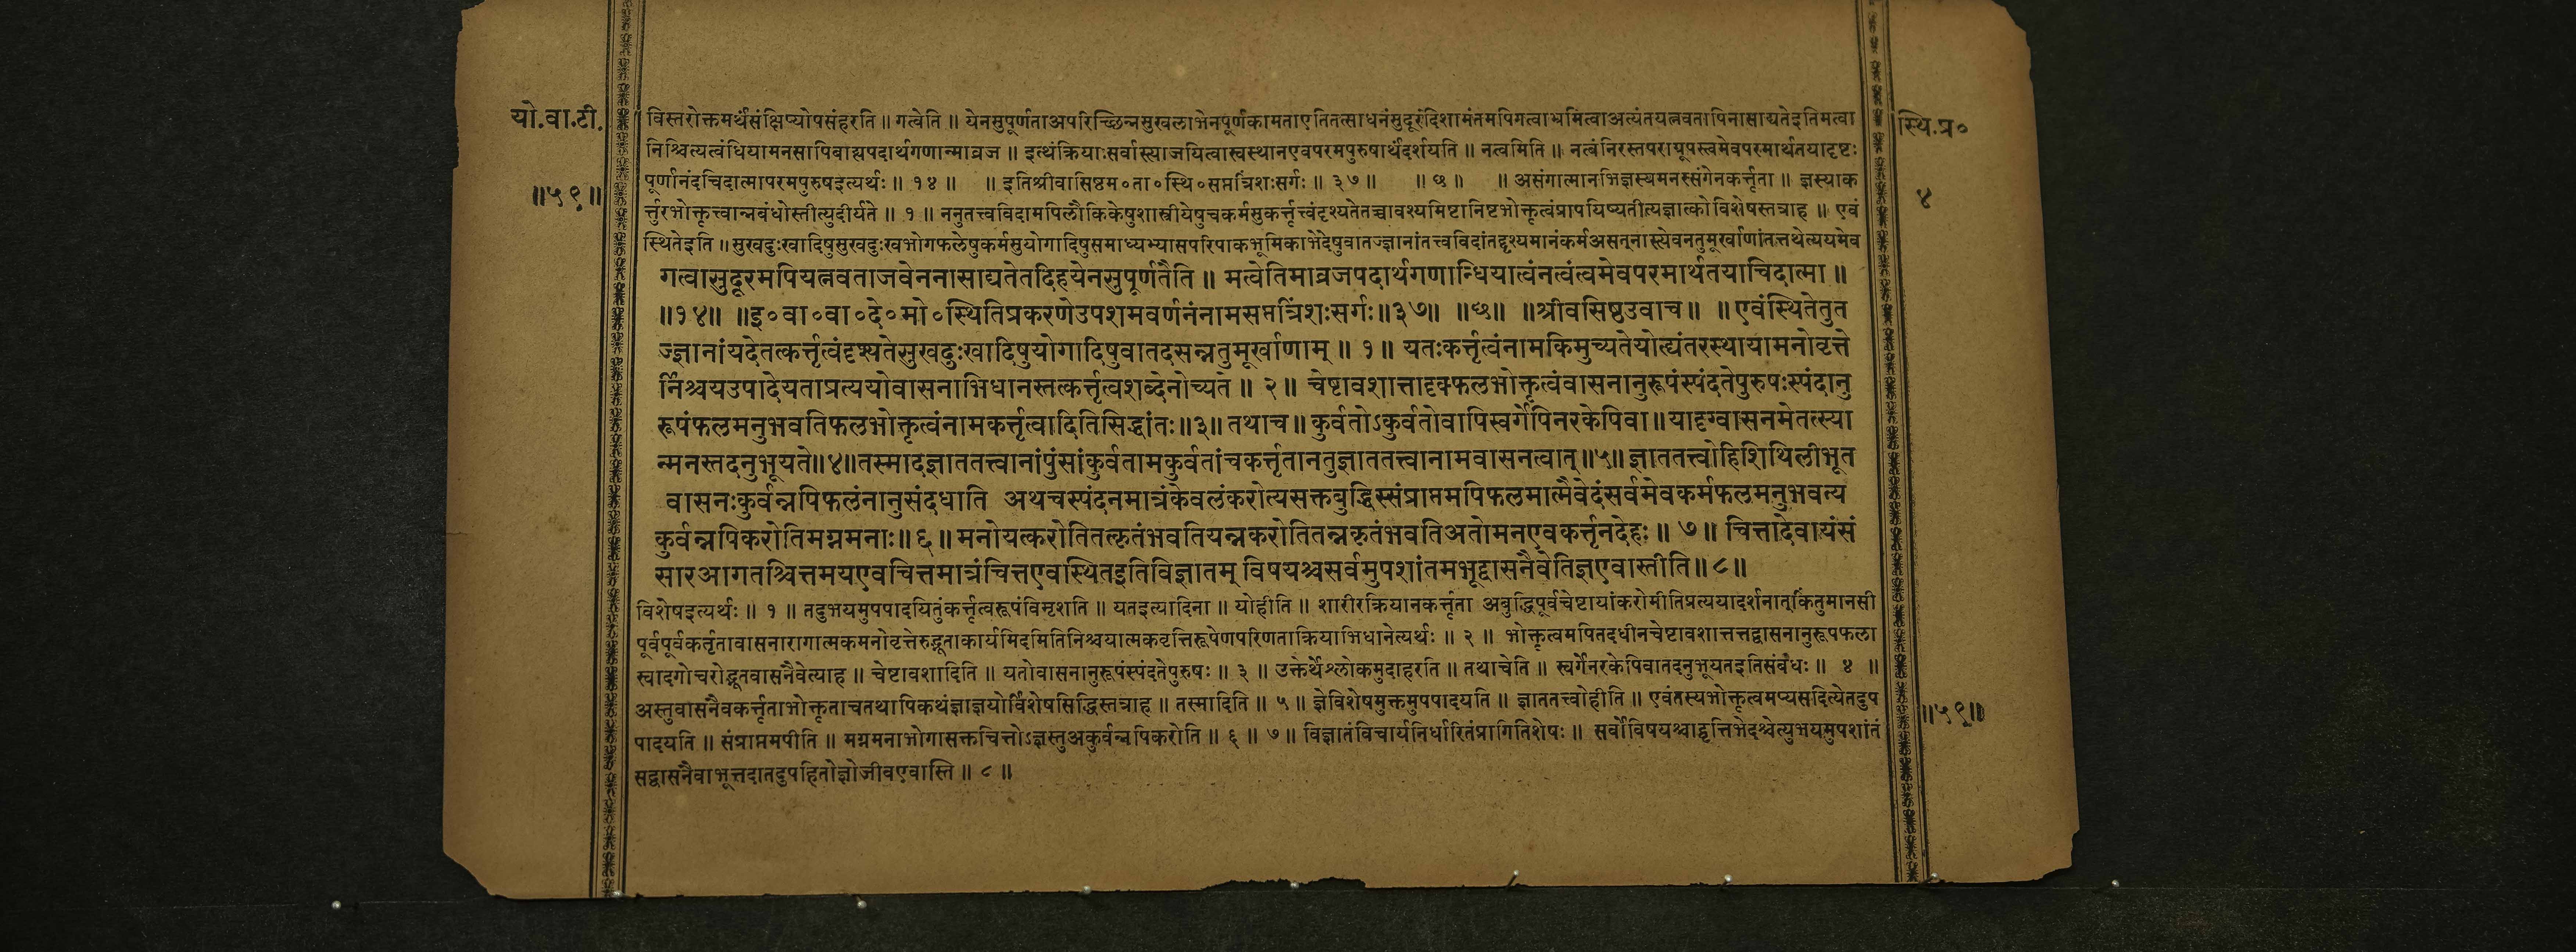 यो.वा.टी.
॥५९॥
स्थि.प्र०
४
विस्तरोक्तमर्थंसंक्षिप्योपसंहरति ॥ गत्वेति ॥ येनसुपूर्णताअपरिच्छिन्नसुखलाभेनपूर्णकामताएतितत्साधनंसुदूरंदिशामंतमपिगत्वाभ्रमित्वाअत्यंतयत्नवतापिनासाद्यतेइतिमत्वा
निश्चित्यत्वंधियामनसापिबाह्यपदार्थगणान्माव्रज ॥ इत्थंक्रियाःसर्वास्त्याजयित्वास्वस्थानएवपरमपुरुषार्थंदर्शयति ॥ नत्वमिति ॥ नत्वंनिरस्तपराग्रूपस्त्वमेवपरमार्थतयादृष्टः
पूर्णानंदचिदात्मापरमपुरुषइत्यर्थः ॥ १४ ॥ ॥ इतिश्रीवासिष्ठम०ता०स्थि०सप्तत्रिंशःसर्गः ॥ ३७ ॥ ॥ छ ॥ ॥ असंगात्मानभिज्ञस्यमनस्संगेनकर्त्तृता ॥ ज्ञस्याक
र्त्तुरभोक्तृत्वान्नबंधोस्तीत्युदीर्यते ॥ १ ॥ ननुतत्त्वविदामपिलौकिकेषुशास्त्रीयेषुचकर्मसुकर्त्तृत्वंदृश्यतेतच्चावश्यमिष्टानिष्टभोक्तृत्वंप्रापयिष्यतीत्यज्ञात्कोविशेषस्तत्राह ॥ एवं
स्थितेइति ॥ सुखदुःखादिषुसुखदुःखभोगफलेषुकर्मसुयोगादिषुसमाध्यभ्यासपरिपाकभूमिकाभेदेषुवातज्ज्ञानांतत्त्वविदांतद्दृश्यमानंकर्मअसत्नास्त्येवनतुमूर्खाणांतत्तथेत्ययमेव
गत्वासुदूरमपियत्नवताजवेननासाद्यतेतदिहयेनसुपूर्णतैति ॥ मत्वेतिमाव्रजपदार्थगणान्धियात्वंनत्वंत्वमेवपरमार्थतयाचिदात्मा ॥
॥१४॥ ॥इ०वा०वा०दे०मो०स्थितिप्रकरणेउपशमवर्णनंनामसप्तत्रिंशःसर्गः॥३७॥ ॥छ॥ ॥श्रीवसिष्ठउवाच॥ ॥एवंस्थितेतुत
ज्ज्ञानांयदेतत्कर्त्तृत्वंदृश्यतेसुखदुःखादिषुयोगादिषुवातदसन्नतुमूर्खाणाम् ॥ १ ॥ यतःकर्त्तृत्वंनामकिमुच्यतेयोत्द्यंतरस्थायामनोवृत्ते
र्निश्चयउपादेयताप्रत्ययोवासनाभिधानस्तत्कर्त्तृत्वशब्देनोच्यते ॥ २ ॥ चेष्टावशात्तादृक्फलभोक्तृत्वंवासनानुरूपंस्पंदतेपुरुषःस्पंदानु
रूपंफलमनुभवतिफलभोक्तृत्वंनामकर्त्तृत्वादितिसिद्धांतः॥३॥ तथाच ॥ कुर्वतोऽकुर्वतोवापिस्वर्गेपिनरकेपिवा ॥ यादृग्वासनमेतत्स्या
न्मनस्तदनुभूयते॥४॥तस्मादज्ञाततत्त्वानांपुंसांकुर्वतामकुर्वतांचकर्त्तृतानतुज्ञाततत्त्वानामवासनत्वात्॥५॥ ज्ञाततत्त्वोहिशिथिलीभूत
वासनःकुर्वन्नपिफलंनानुसंदधाति अथचस्पंदनमात्रंकेवलंकरोत्यसक्तबुद्धिस्संप्राप्तमपिफलमात्मैवेदंसर्वमेवकर्मफलमनुभवत्य
कुर्वन्नपिकरोतिमग्नमनाः॥ ६ ॥ मनोयत्करोतितत्कृतंभवतियन्नकरोतितन्नकृतंभवतिअतोमनएवकर्त्तृनदेहः ॥ ७ ॥ चित्तादेवायंसं
सारआगतश्चित्तमयएवचित्तमात्रंचित्तएवास्थितइतिविज्ञातम् विषयश्चसर्वमुपशांतमभूद्वासनैवेतिज्ञएवास्तीति॥ ८ ॥
विशेषइत्यर्थः ॥ १ ॥ तदुभयमुपपादयितुंकर्त्तृत्वरूपंविमृशति ॥ यतइत्यादिना ॥ योहीति ॥ शारीरक्रियानकर्त्तृता अबुद्धिपूर्वचेष्टायांकरोमीतिप्रत्ययादर्शनात्किंतुमानसी
पूर्वपूर्वकर्तृतावासनारागात्मकमनोवृत्तेरुद्भूताकार्यमिदमितिनिश्चयात्मकवृत्तिरूपेणपरिणताक्रियाभिधानेत्यर्थः ॥ २ ॥ भोक्तृत्वमपितदधीनचेष्टावशात्तत्तद्वासनानुरूपफला
स्वादगोचरोद्भूतवासनैवेत्याह ॥ चेष्टावशादिति ॥ यतोवासनानुरूपंस्पंदतेपुरुषः ॥ ३ ॥ उक्तेर्थेश्लोकमुदाहरति ॥ तथाचेति ॥ स्वर्गेनरकेपिवातदनुभूयतइतिसंबंधः ॥ ४ ॥
अस्तुवासनैवकर्त्तृताभोक्तृताचतथापिकथंज्ञाज्ञयोर्विशेषसिद्धिस्तत्राह ॥ तस्मादिति ॥ ५ ॥ ज्ञेविशेषमुक्तमुपपादयति ॥ ज्ञाततत्त्वोहीति ॥ एवंतस्यभोक्तृत्वमप्यसदित्येतदुप
पादयति ॥ संप्राप्तमपीति ॥ मग्नमनाभोगासक्तचित्तोऽज्ञस्तुअकुर्वन्नपिकरोति ॥ ६ ॥ ७ ॥ विज्ञातंविचार्यनिर्धारितंप्रागितिशेषः ॥ सर्वोविषयश्चाद्वृत्तिभेदश्चेत्युभयमुपशांतं
सद्वासनैवाभूत्तदातदुपहितोज्ञोजीवएवास्ति ॥ ८ ॥
॥५९॥